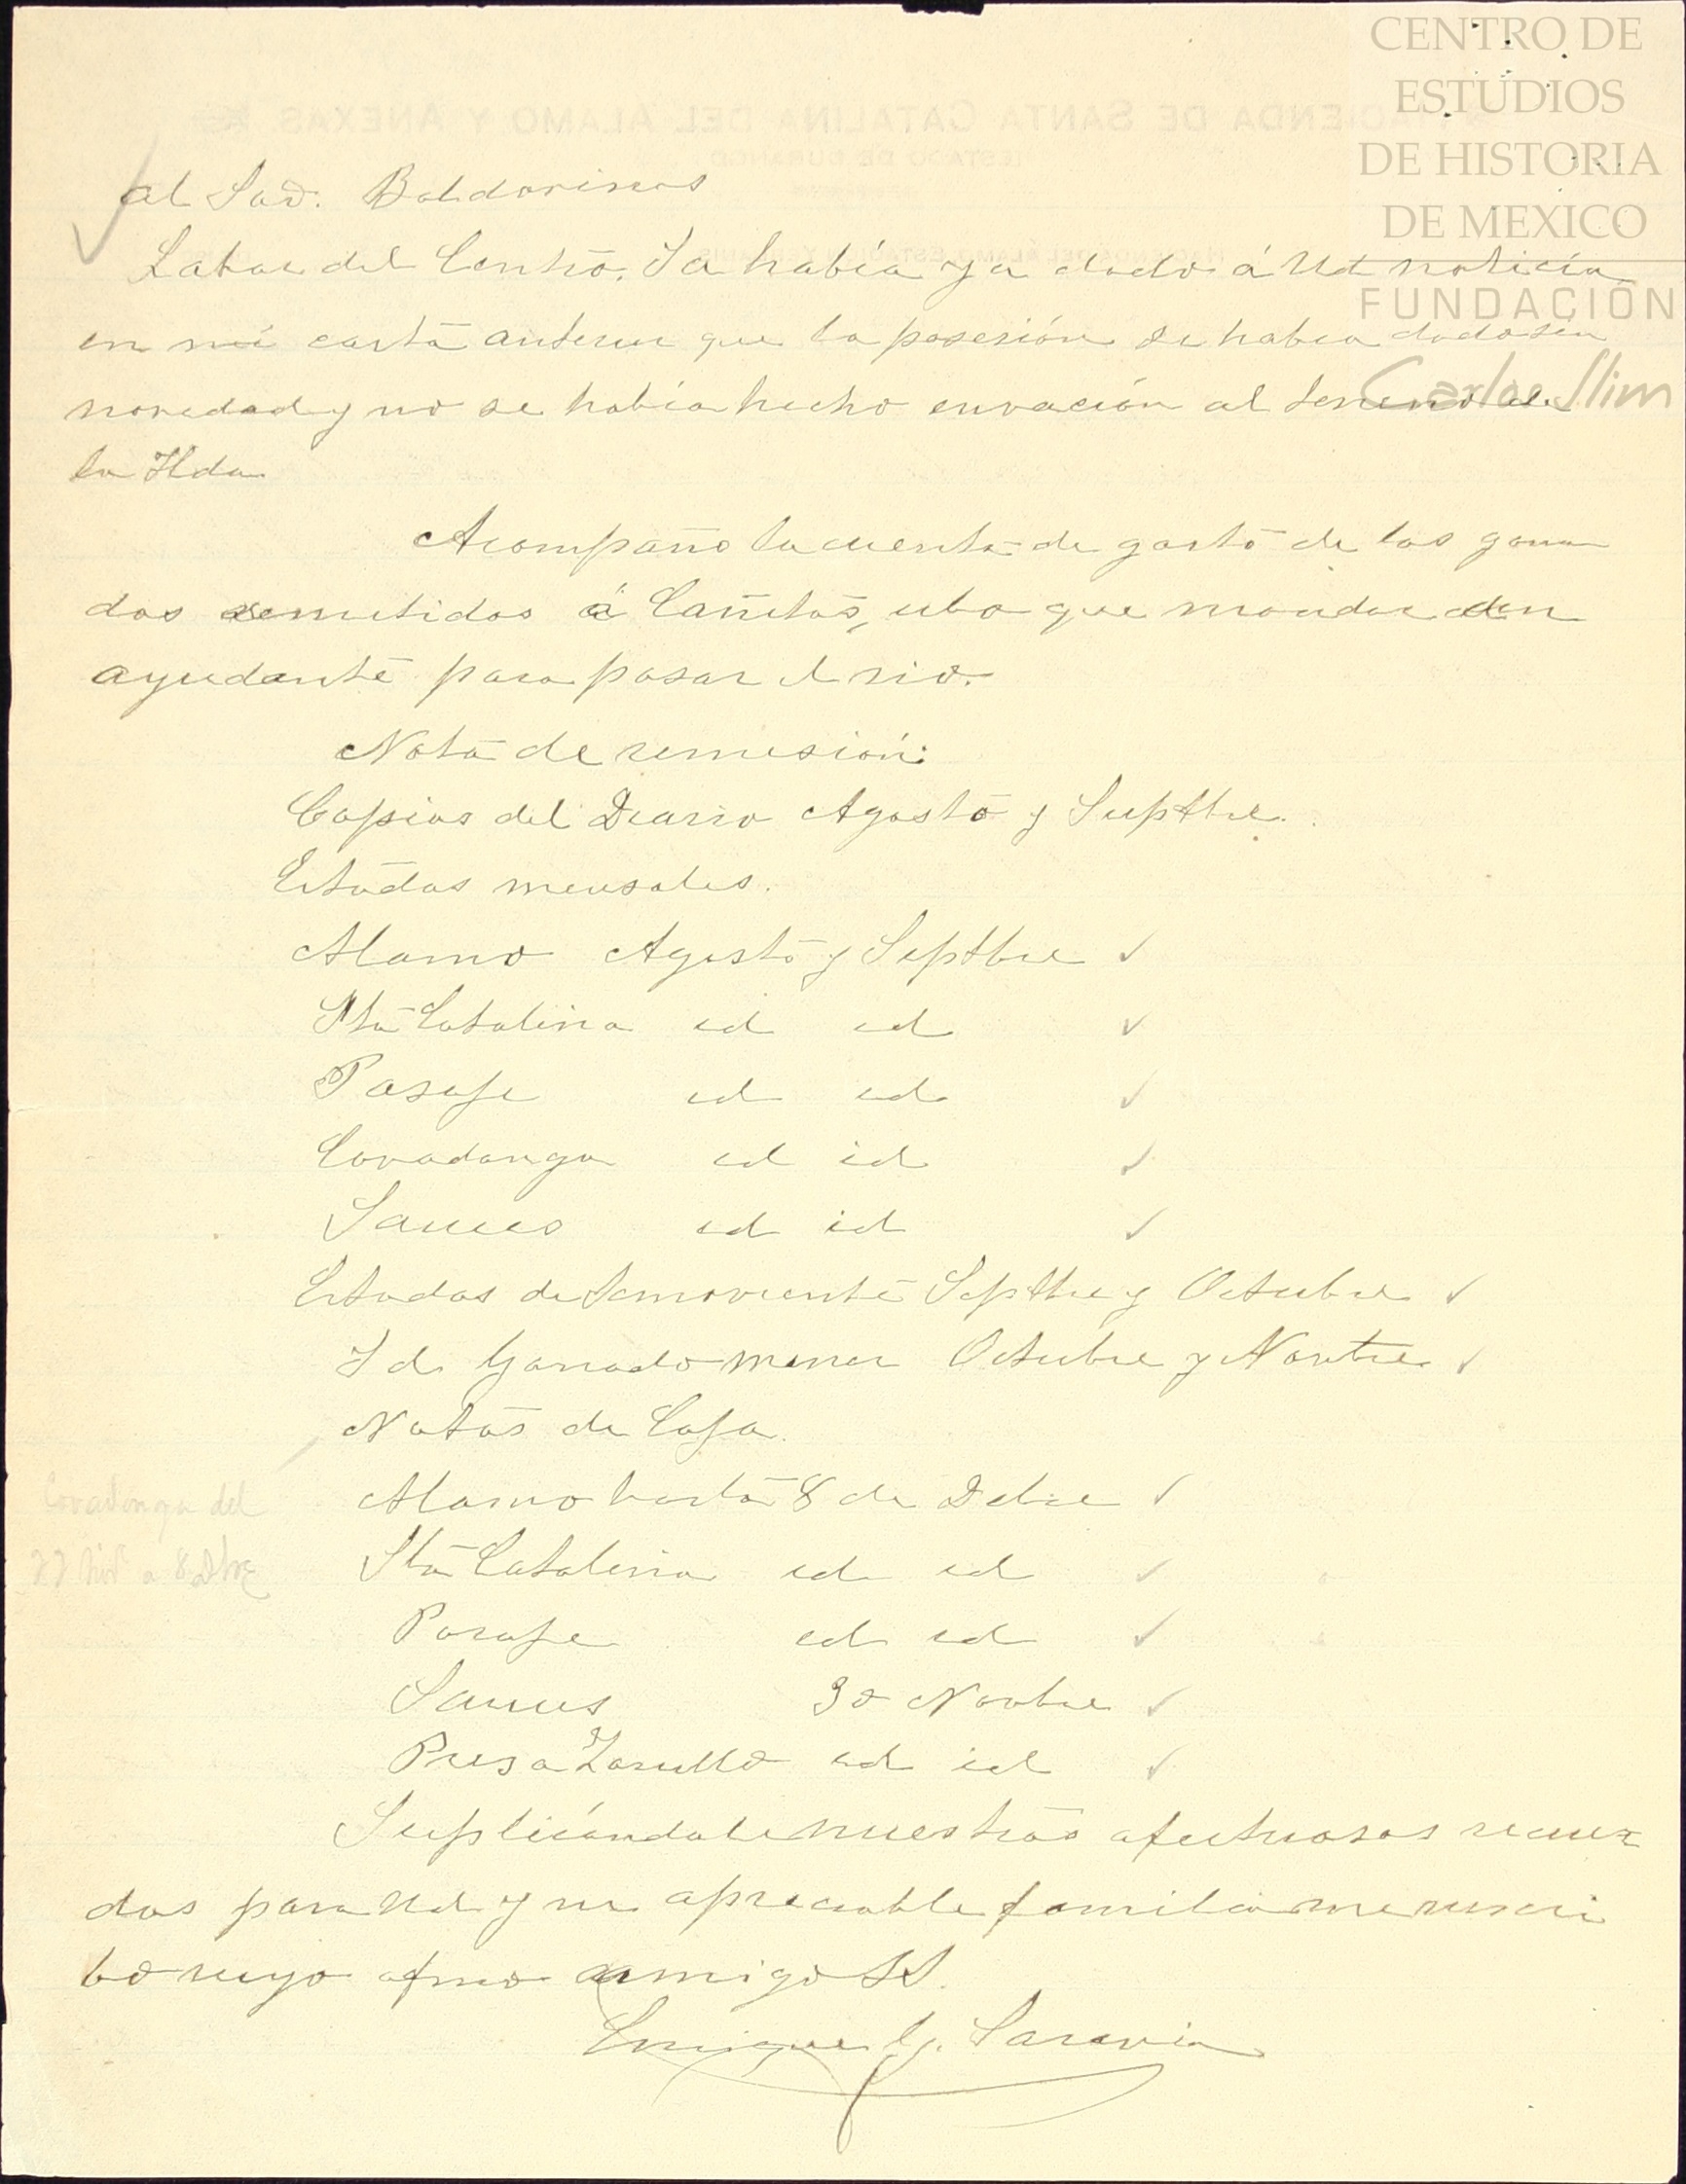 CENTRO DE
ESTUDIOS
DE HISTORIA
DE MEXICO
FUNDACIÓN
Carlos Slim
al Lad.
Labor del Centro. Ya había ya dado á Ud noticia
en mi carta anterior que la posesión se habia dado sin
novedad y no se había hecho envación al terreno de
la Hda
Acompaño la cuenta de gasto de los gana
dos remitidos á Cañitas, ubo que mandar un
ayudante para pasar el rio.
Nota de remision:
Copias del Diario Agosto y Septbre.
Estados mensales.
Alamo Agosto y Septbre ✓
Sta Catalina id id ✓
Pasaje id id ✓
Covadonga id id ✓
Sauces id id ✓
Estados de Semoviente Septbre y Octubre ✓
Id Ganado menor Octubre y Novbre ✓
Notas de Caja.
Alamo hasta 8 de Dcbre ✓
Sta Catalina id id ✓
Pasaje id id ✓
Sauces 30 Novbre ✓
Presa id id ✓
Covadonga del
22 Nov a 8 Dbre
Suplicándole nuestros afectuosos recuer
dos para Ud y su apreciable familia me suscri
bo suyo afmo amigo SS.
Enrique G. Saravia